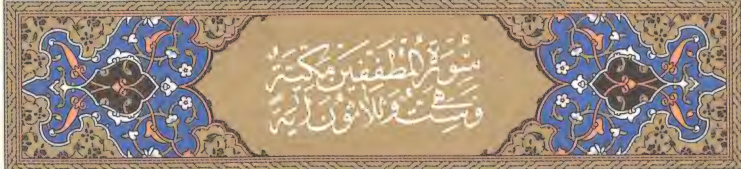 سُورَةُ المُطَفِّفِينَ مَكِّيَّةٌ
وَهِيَ سِتٌّ وَثَلَاثُونَ آيَةً